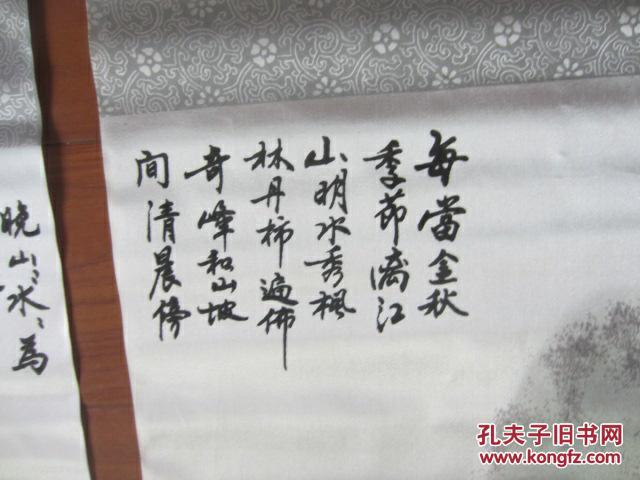 每當金秋
季節漓江
山明水秀楓
林丹柿遍佈
奇峰和山坡
间清晨傍
晚山:水:為
孔夫子旧书网
www.kongfz.com